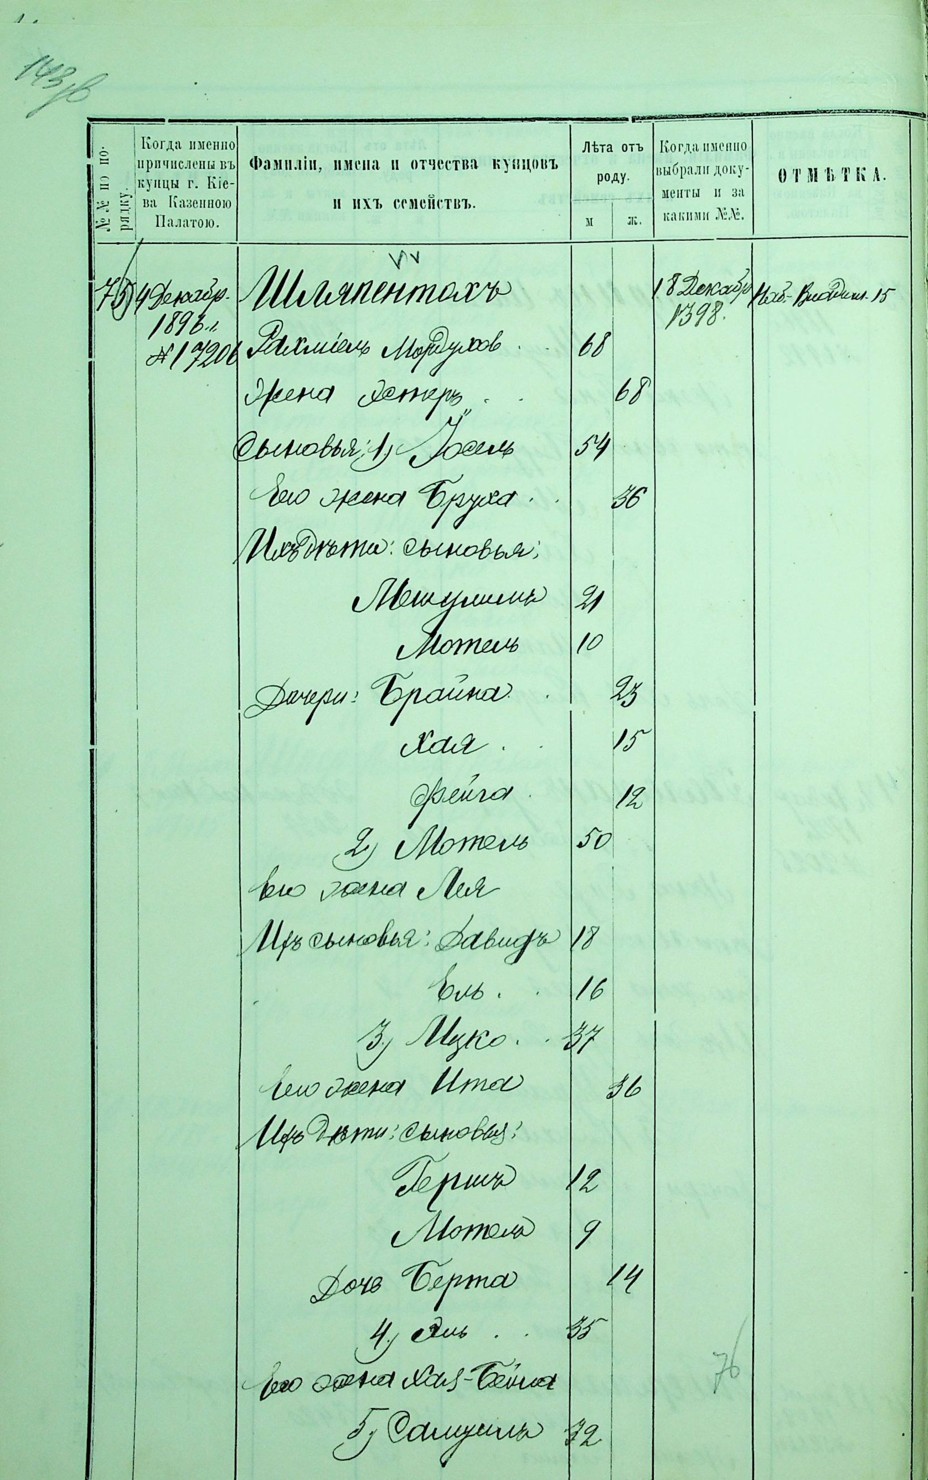 143 об
№№ по по-
рядку.
Когда именно
причислены въ
купцы г. Кіе-
ва Казенною
Палатою.
Фамиліи, имена и отчества купцовъ
и ихъ семействъ.
Лѣта отъ
роду.
м
ж.
Когда именно
выбрали доку-
менты и за
какими №№.
ОТМѢТКА.
75) 4 Декабр. Шляпентохъ 18 Декабр 15
1896 г. 1398.
№ 17206 Рахміель Мордухов. 68
Жена Эстеръ 68
Сыновья: 1) Іосель 54
Его жена Бруха 36
Ихъ дѣти: сыновья:
Мешулимъ 21
Мотель 10
Дочери: Брайна 23
Хая 15
Фейга 12
2) Мотель 50
Его жена Лея
Ихъ сыновья: Давидъ 18
Ель 16
3) Ицко 37
Его жена Ита 36
Ихъ дѣти: сыновья:
Гершъ 12
Мотель 9
Дочь Берта 14
4) Эль 35
76
Его жена Хая-Бейла
5) Самуилъ 32